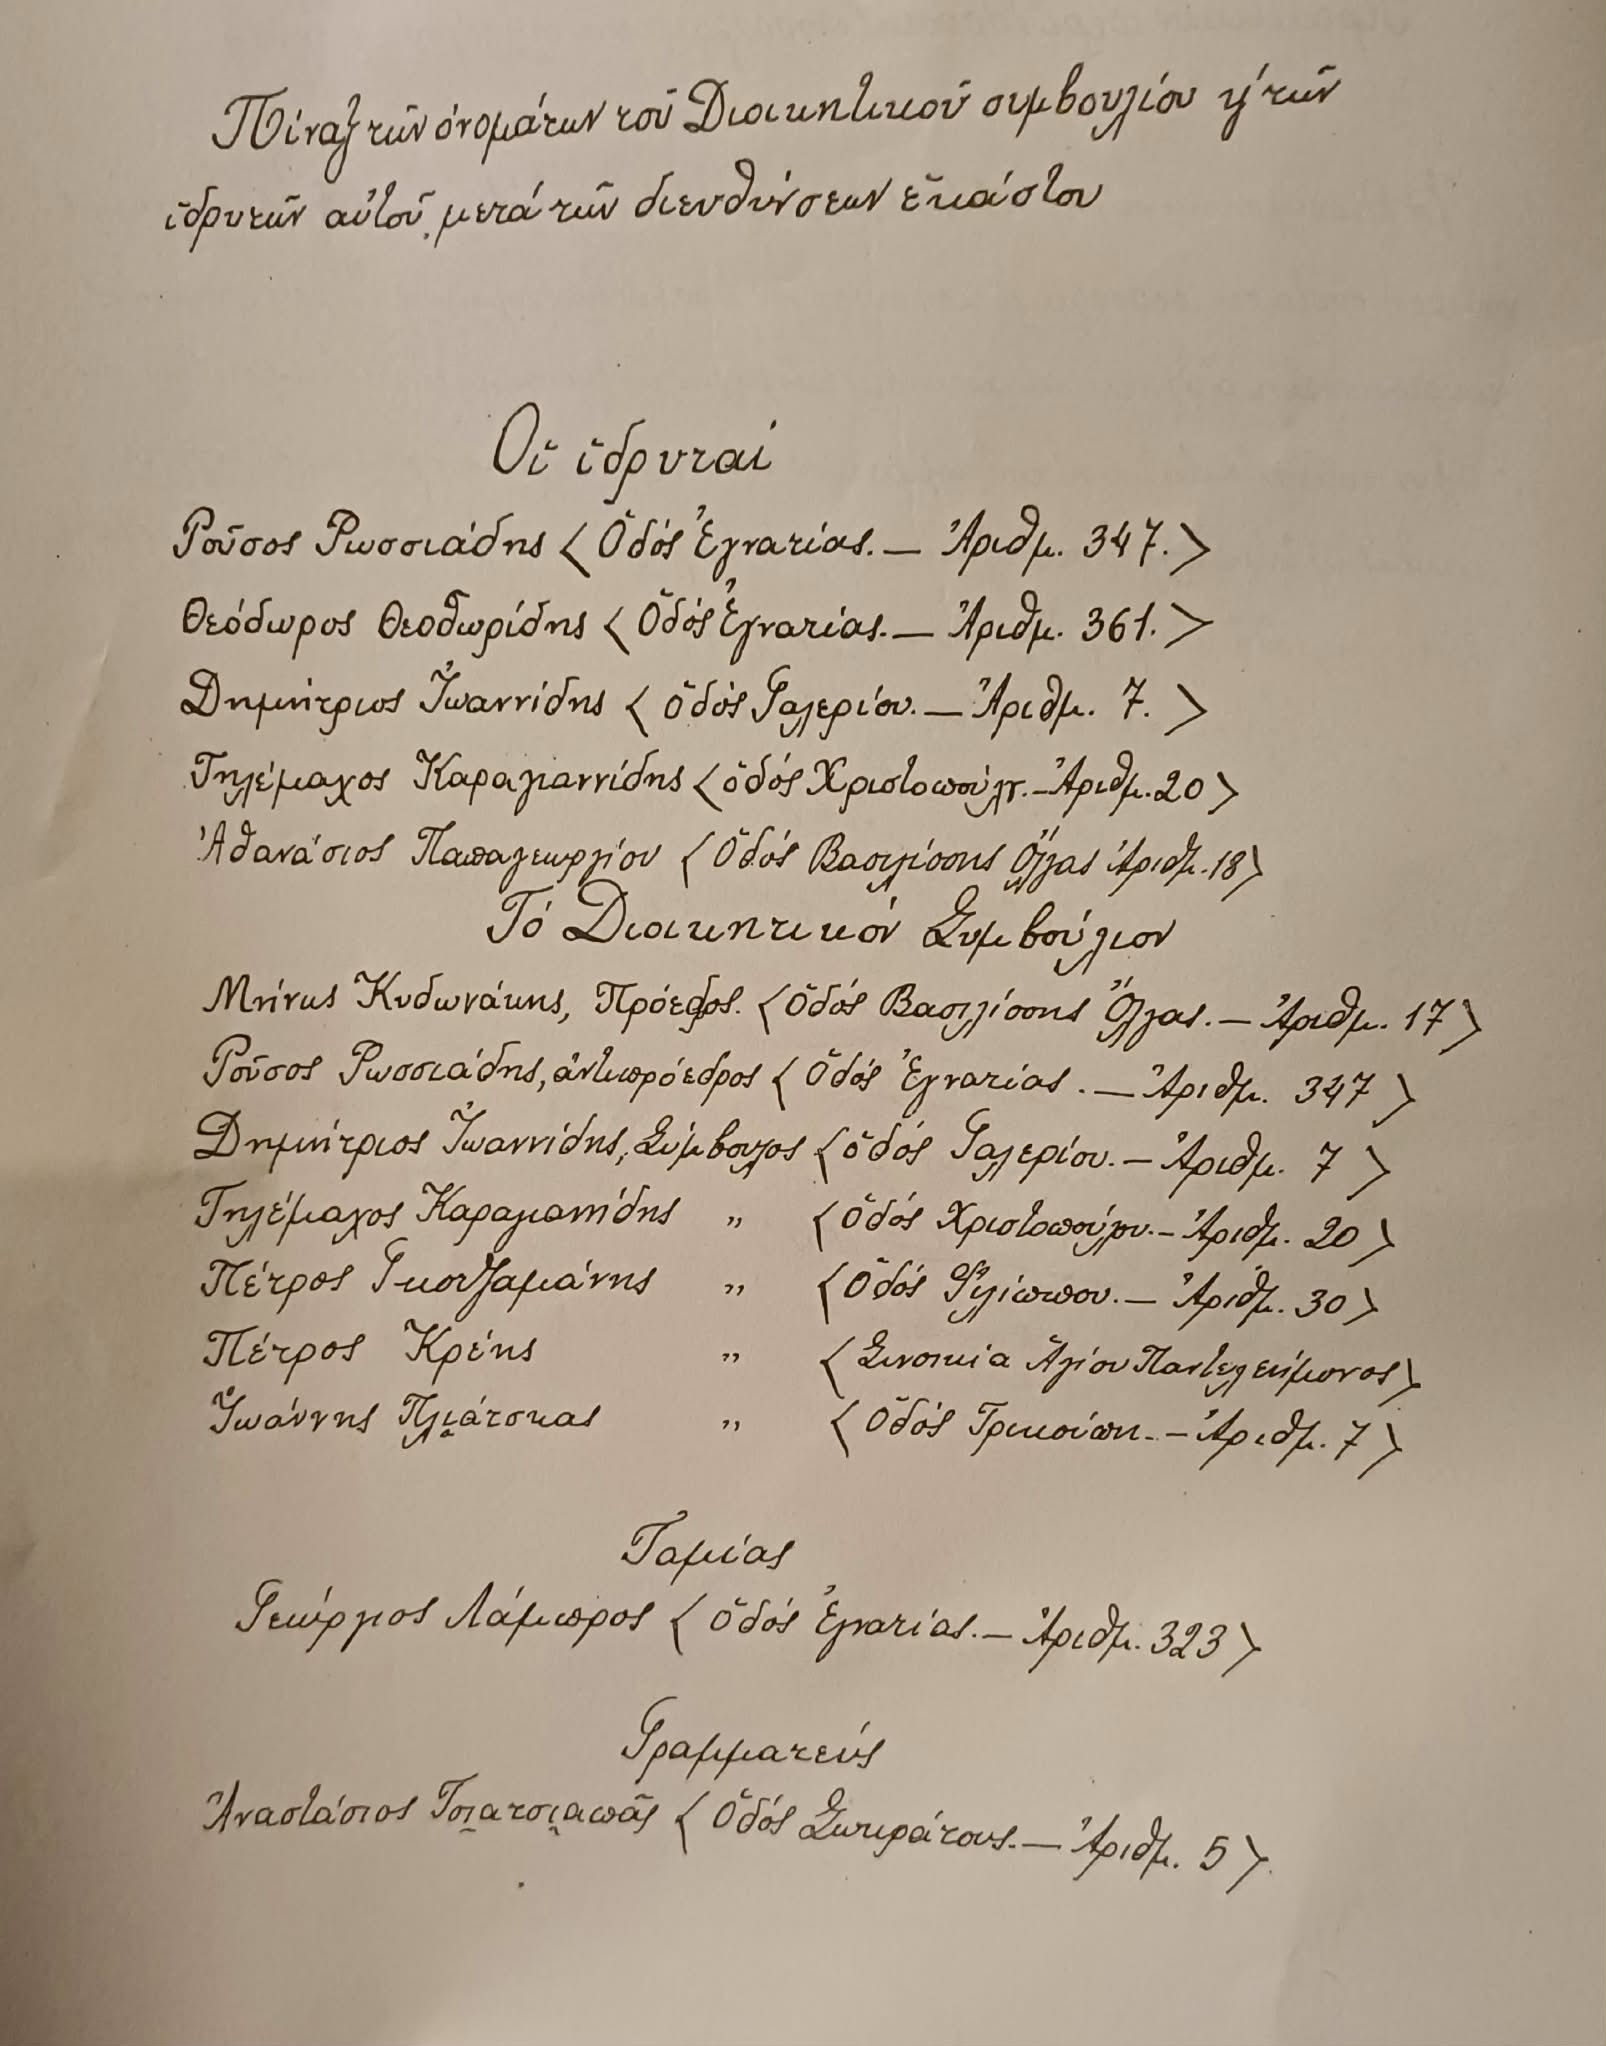 Πίναξ τῶν ὀνομάτων τοῦ Διοικητικοῦ συμβουλίου ϗ τῶν
ἱδρυτῶν αὐτοῦ, μετά τῶν διευθύνσεων ἑκάστου
Οἱ ἱδρυταί
Ροῦσος Ρωσσιάδης < Ὁδός Ἐγνατίας. — Ἀριθμ. 347. >
Θεόδωρος Θεοδωρίδης < Ὁδός Ἐγνατίας. — Ἀριθμ. 361. >
Δημήτριος Ἰωαννίδης < ὁδός Γαλερίου. — Ἀριθμ. 7. >
Τηλέμαχος Καραγιαννίδης < ὁδός Χριστοπούλου. — Ἀριθμ. 20 >
Ἀθανάσιος Παπαγεωργίου < Ὁδός Βασιλίσσης Ὄλγας Ἀριθμ. 18 >
Τό Διοικητικόν Συμβούλιον
Μηνᾶς Κυδωνάκης, Πρόεδρος. < Ὁδός Βασιλίσσης Ὄλγας. — Ἀριθμ. 17 >
Ροῦσος Ρωσσιάδης, ἀντιπρόεδρος < Ὁδός Ἐγνατίας. — Ἀριθμ. 347 >
Δημήτριος Ἰωαννίδης, Σύμβουλος < ὁδός Γαλερίου. — Ἀριθμ. 7 >
Τηλέμαχος Καραγιαννίδης „ < Ὁδός Χριστοπούλου. — Ἀριθμ. 20 >
Πέτρος Γκουτζαμάνης „ < Ὁδός Φιλίππου. — Ἀριθμ. 30 >
Πέτρος Κρέης „ < Συνοικία Ἁγίου Παντελεήμονος >
Ἰωάννης Πλιάτσκας „ < Ὁδός Τρικούπη. — Ἀριθμ. 7 >
Ταμίας
Γεώργιος Λάμπρος < Ὁδός Ἐγνατίας. — Ἀριθμ. 323 >
Γραμματεύς
Ἀναστάσιος Τσιατσιαπᾶς < Ὁδός Σωκράτους. — Ἀριθμ. 5 >